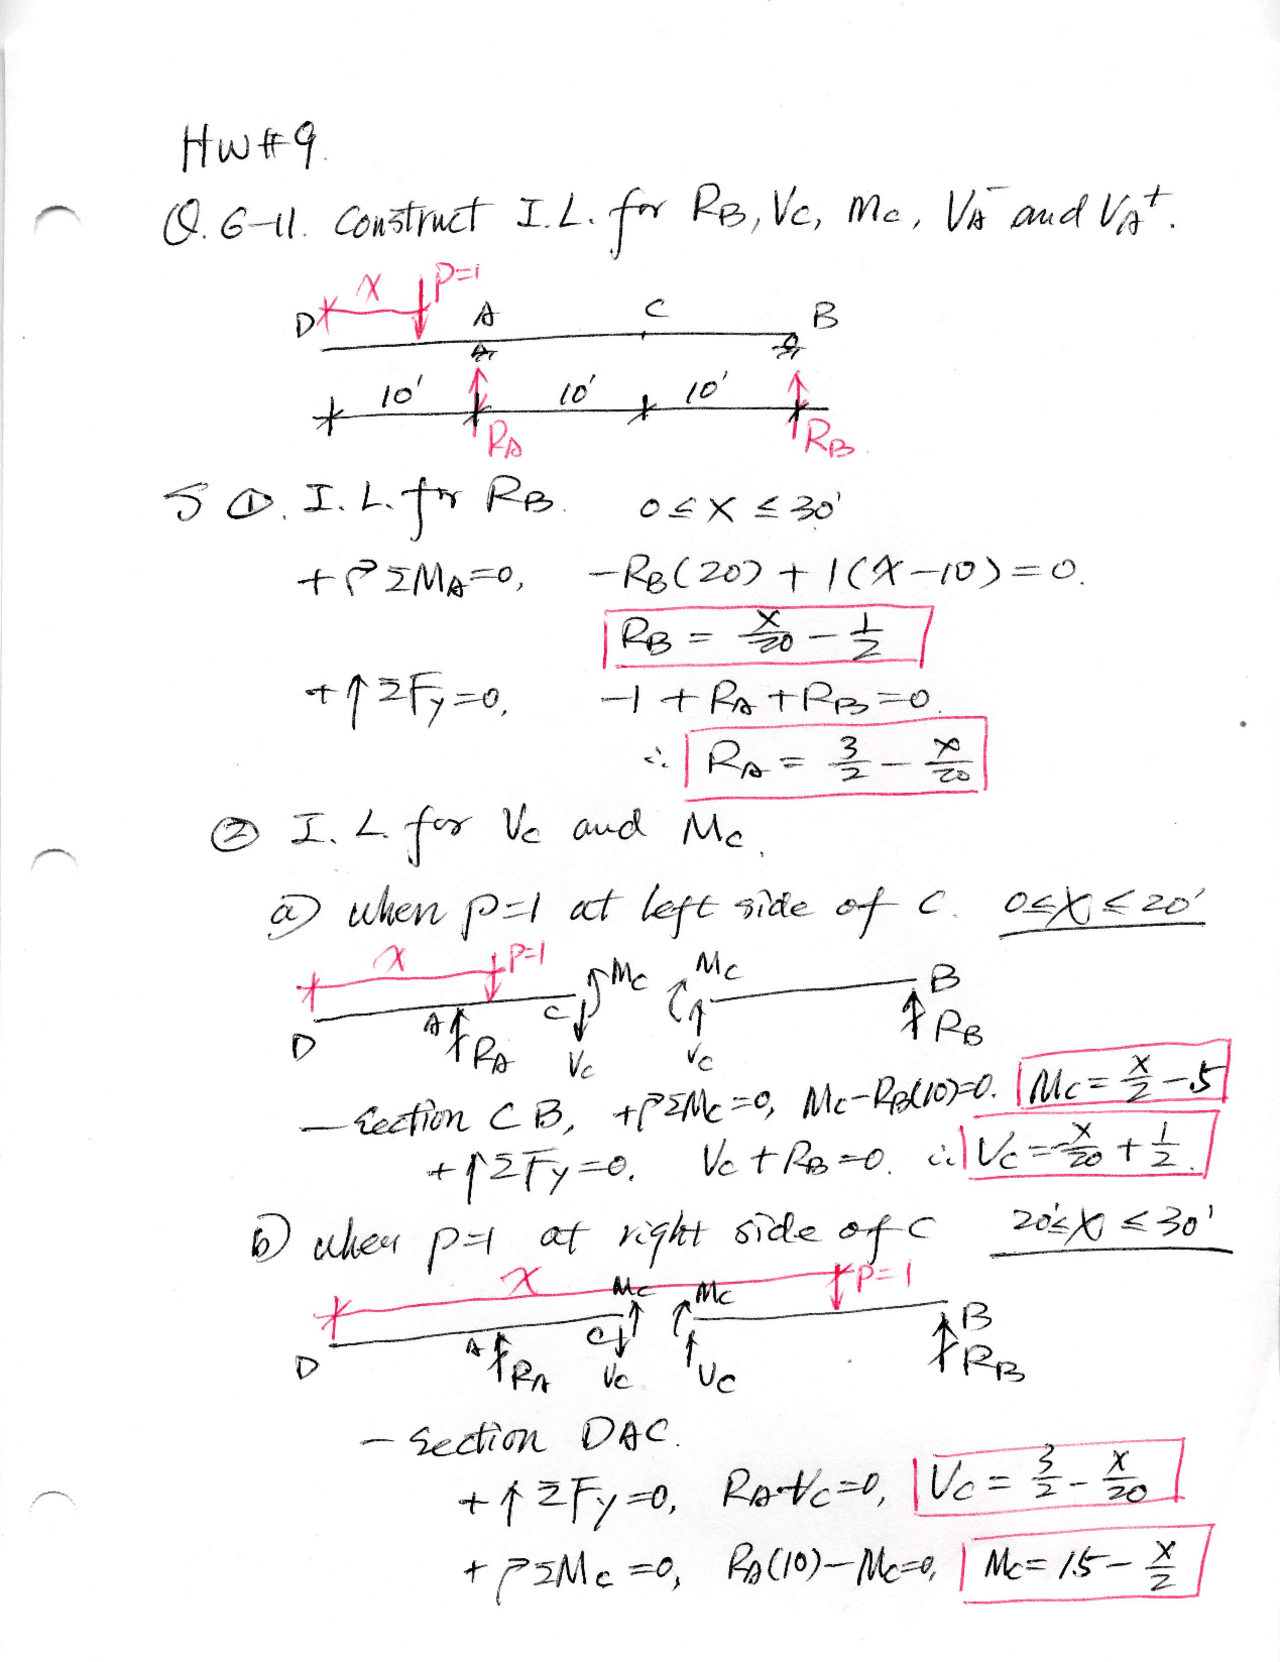 HW#9.
Q. 6-11. Construct I.L. for RB, Vc, Mc, VA⁻ and VA⁺.
x P=1
D A C B
10' 10' 10'
RA RB
5 ①. I.L. for RB. 0 ≤ x ≤ 30'
+↷ΣMA=0, -RB(20) + 1(x-10) = 0.
RB = x/20 - 1/2
+↑ΣFy=0, -1 + RA + RB = 0.
∴ RA = 3/2 - x/20
② I.L. for Vc and Mc.
a) when p=1 at left side of C. 0≤x≤20'
x P=1 Mc Mc B
D A RA C Vc Vc RB
- Section CB, +↷ΣMc=0, Mc-RB(10)=0. Mc = x/2 - 5
+↑ΣFy=0. Vc + RB = 0. ∴ Vc = -x/20 + 1/2
b) when p=1 at right side of C 20'≤x≤30'
x Mc Mc P=1
D A RA C Vc Vc B RB
- Section DAC.
+↑ΣFy=0, RA-Vc=0, Vc = 3/2 - x/20
+↷ΣMc=0, RA(10)-Mc=0, Mc = 15 - x/2